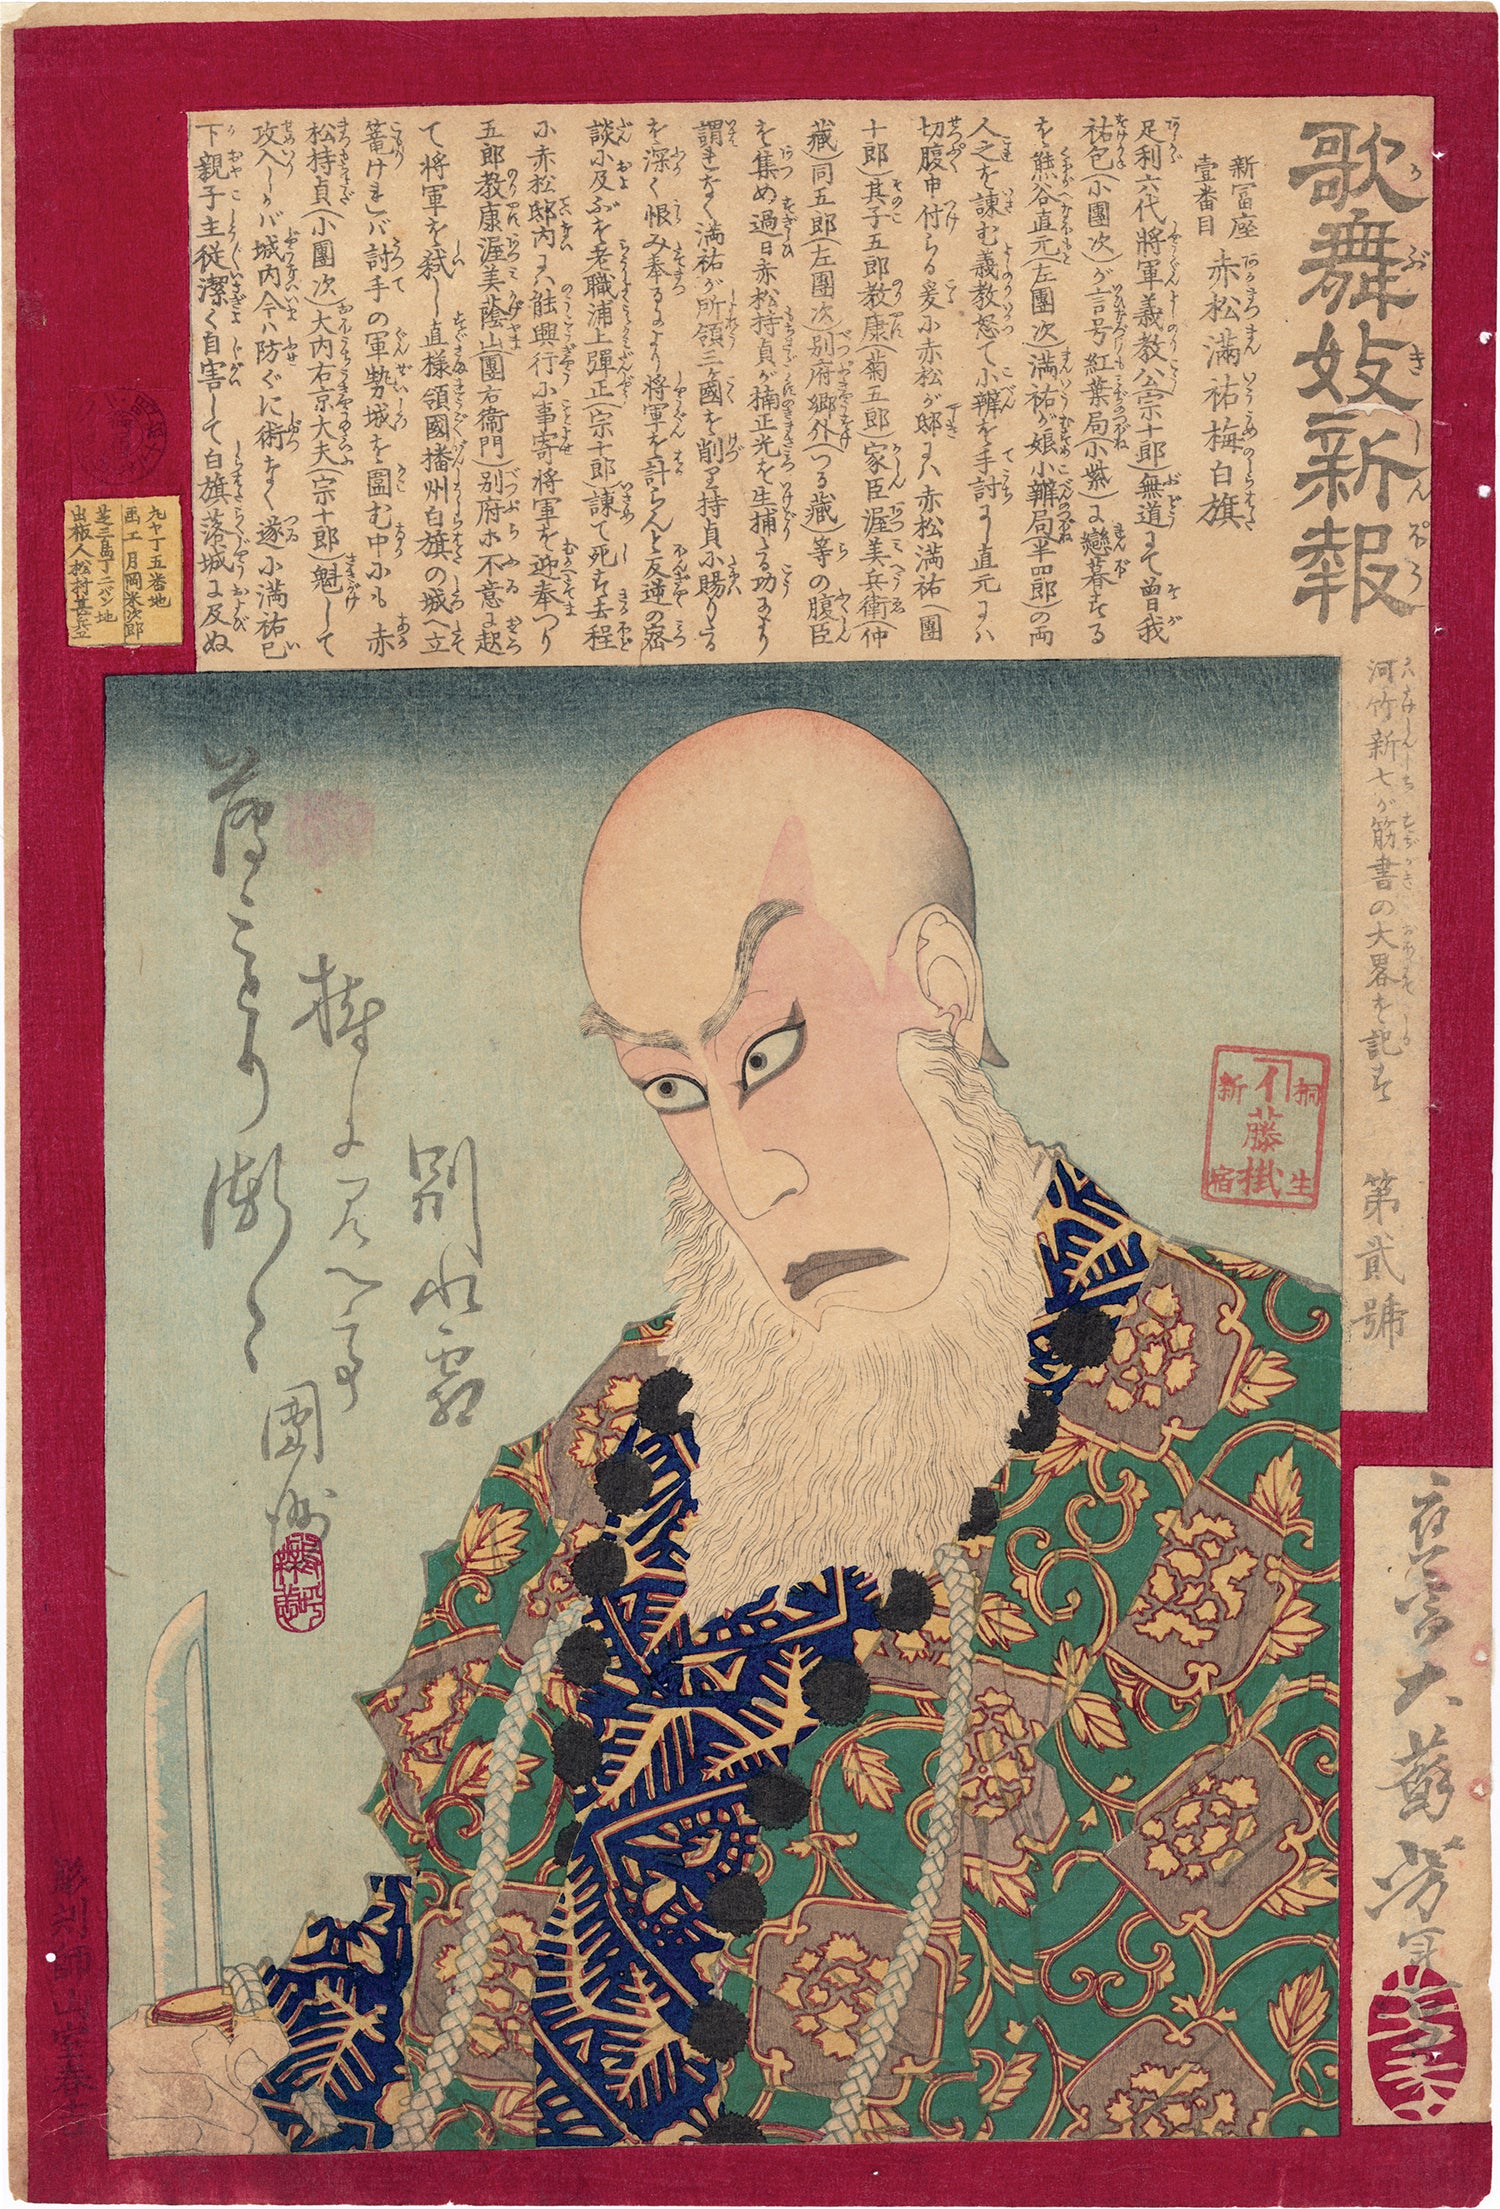 歌舞妓新報
新富座
壹番目
赤松満祐梅白旗
足利六代將軍義教公(宗十郎)無道にて曽我
祐包(小團次)が言号紅葉局(小紫)に戀暮する
を熊谷直元(左團次)満祐が娘小辨局(半四郎)の両
人之を諫む義教怒て小辨を手討にし直元には
切腹申付らる爰に赤松が邸には赤松満祐(團
十郎)其子五郎教康(菊五郎)家臣渥美兵衛(仲
藏)同五郎(左團次)別府郷外(つる藏)等の腹臣
を集め過日赤松持貞が楠正光を生捕たる功により
謂れなく満祐が所領三ヶ國を削り持貞に賜りたる
を深く恨み奉るより將軍を計らんと反逆の密
談に及ぶを老職浦上彈正(宗十郎)諫て死す去程
に赤松邸内には能興行に事寄將軍を迎奉つり
五郎教康渥美蔭山(團右衛門)別府ホ不意に起
て將軍を弑し直様領國播州白旗の城へ立
篭ければ討手の軍勢城を圍む中にも赤
松持貞(小團次)大内右京大夫(宗十郎)魁して
攻入しかば城内今は防ぐに術なく遂に満祐已
下親子主従潔く自害して白旗落城に及ぬ
河竹新七が筋書の大畧を記す
第貳號
九ヤ丁五番地
画工 月岡米次郎
芝三島丁二バン地
出板人 松村甚兵衛
別れ霜
團洲
桐生
イ藤掛
新宿
應需大蘇芳年
彫刻師山室春吉